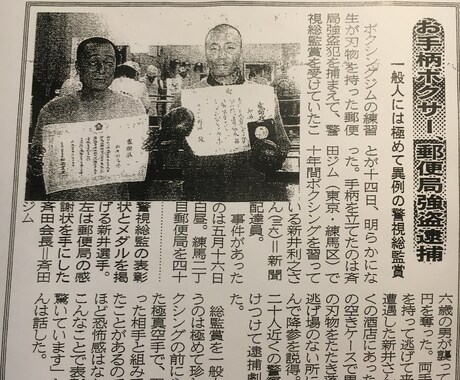 お手柄ボクサー 郵便局強盗逮捕
一般人には極めて異例の警視総監賞
ボクシングジムの練習
生が刃物を持った郵便
局強盗犯を捕まえて、警
視総監賞を受けていたこ
とが十四日、明らかにな
った。手柄を立てたのは斉
田ジム(東京・練馬区)で
十年間ボクシングを習って
いる新井利之さ
ん(三六)=新聞
配達員。
事件があった
のは五月十六日
白昼。練馬二丁
目郵便局を四十
警視総監の表彰
状とメダルを掲
げる新井選手。
左は郵便局の感
謝状を手にした
斉田会長=斉田
ジム
六歳の男が襲って
円を奪った。両手
を持って逃げて来
遭遇した新井さ
くの酒店にあった
の空きケースで男
の刃物をたたき落
逃げ場のない所
んで降参を説得。
二十人近くの警
けつけて逮捕劇
た。
総監賞を一般
うのは極めて珍
クシングの前に
た極真空手で、
った相手と組み
たことがあるの
ほど恐怖感はな
こんなことで表
驚いています」
んは話した。
感謝状